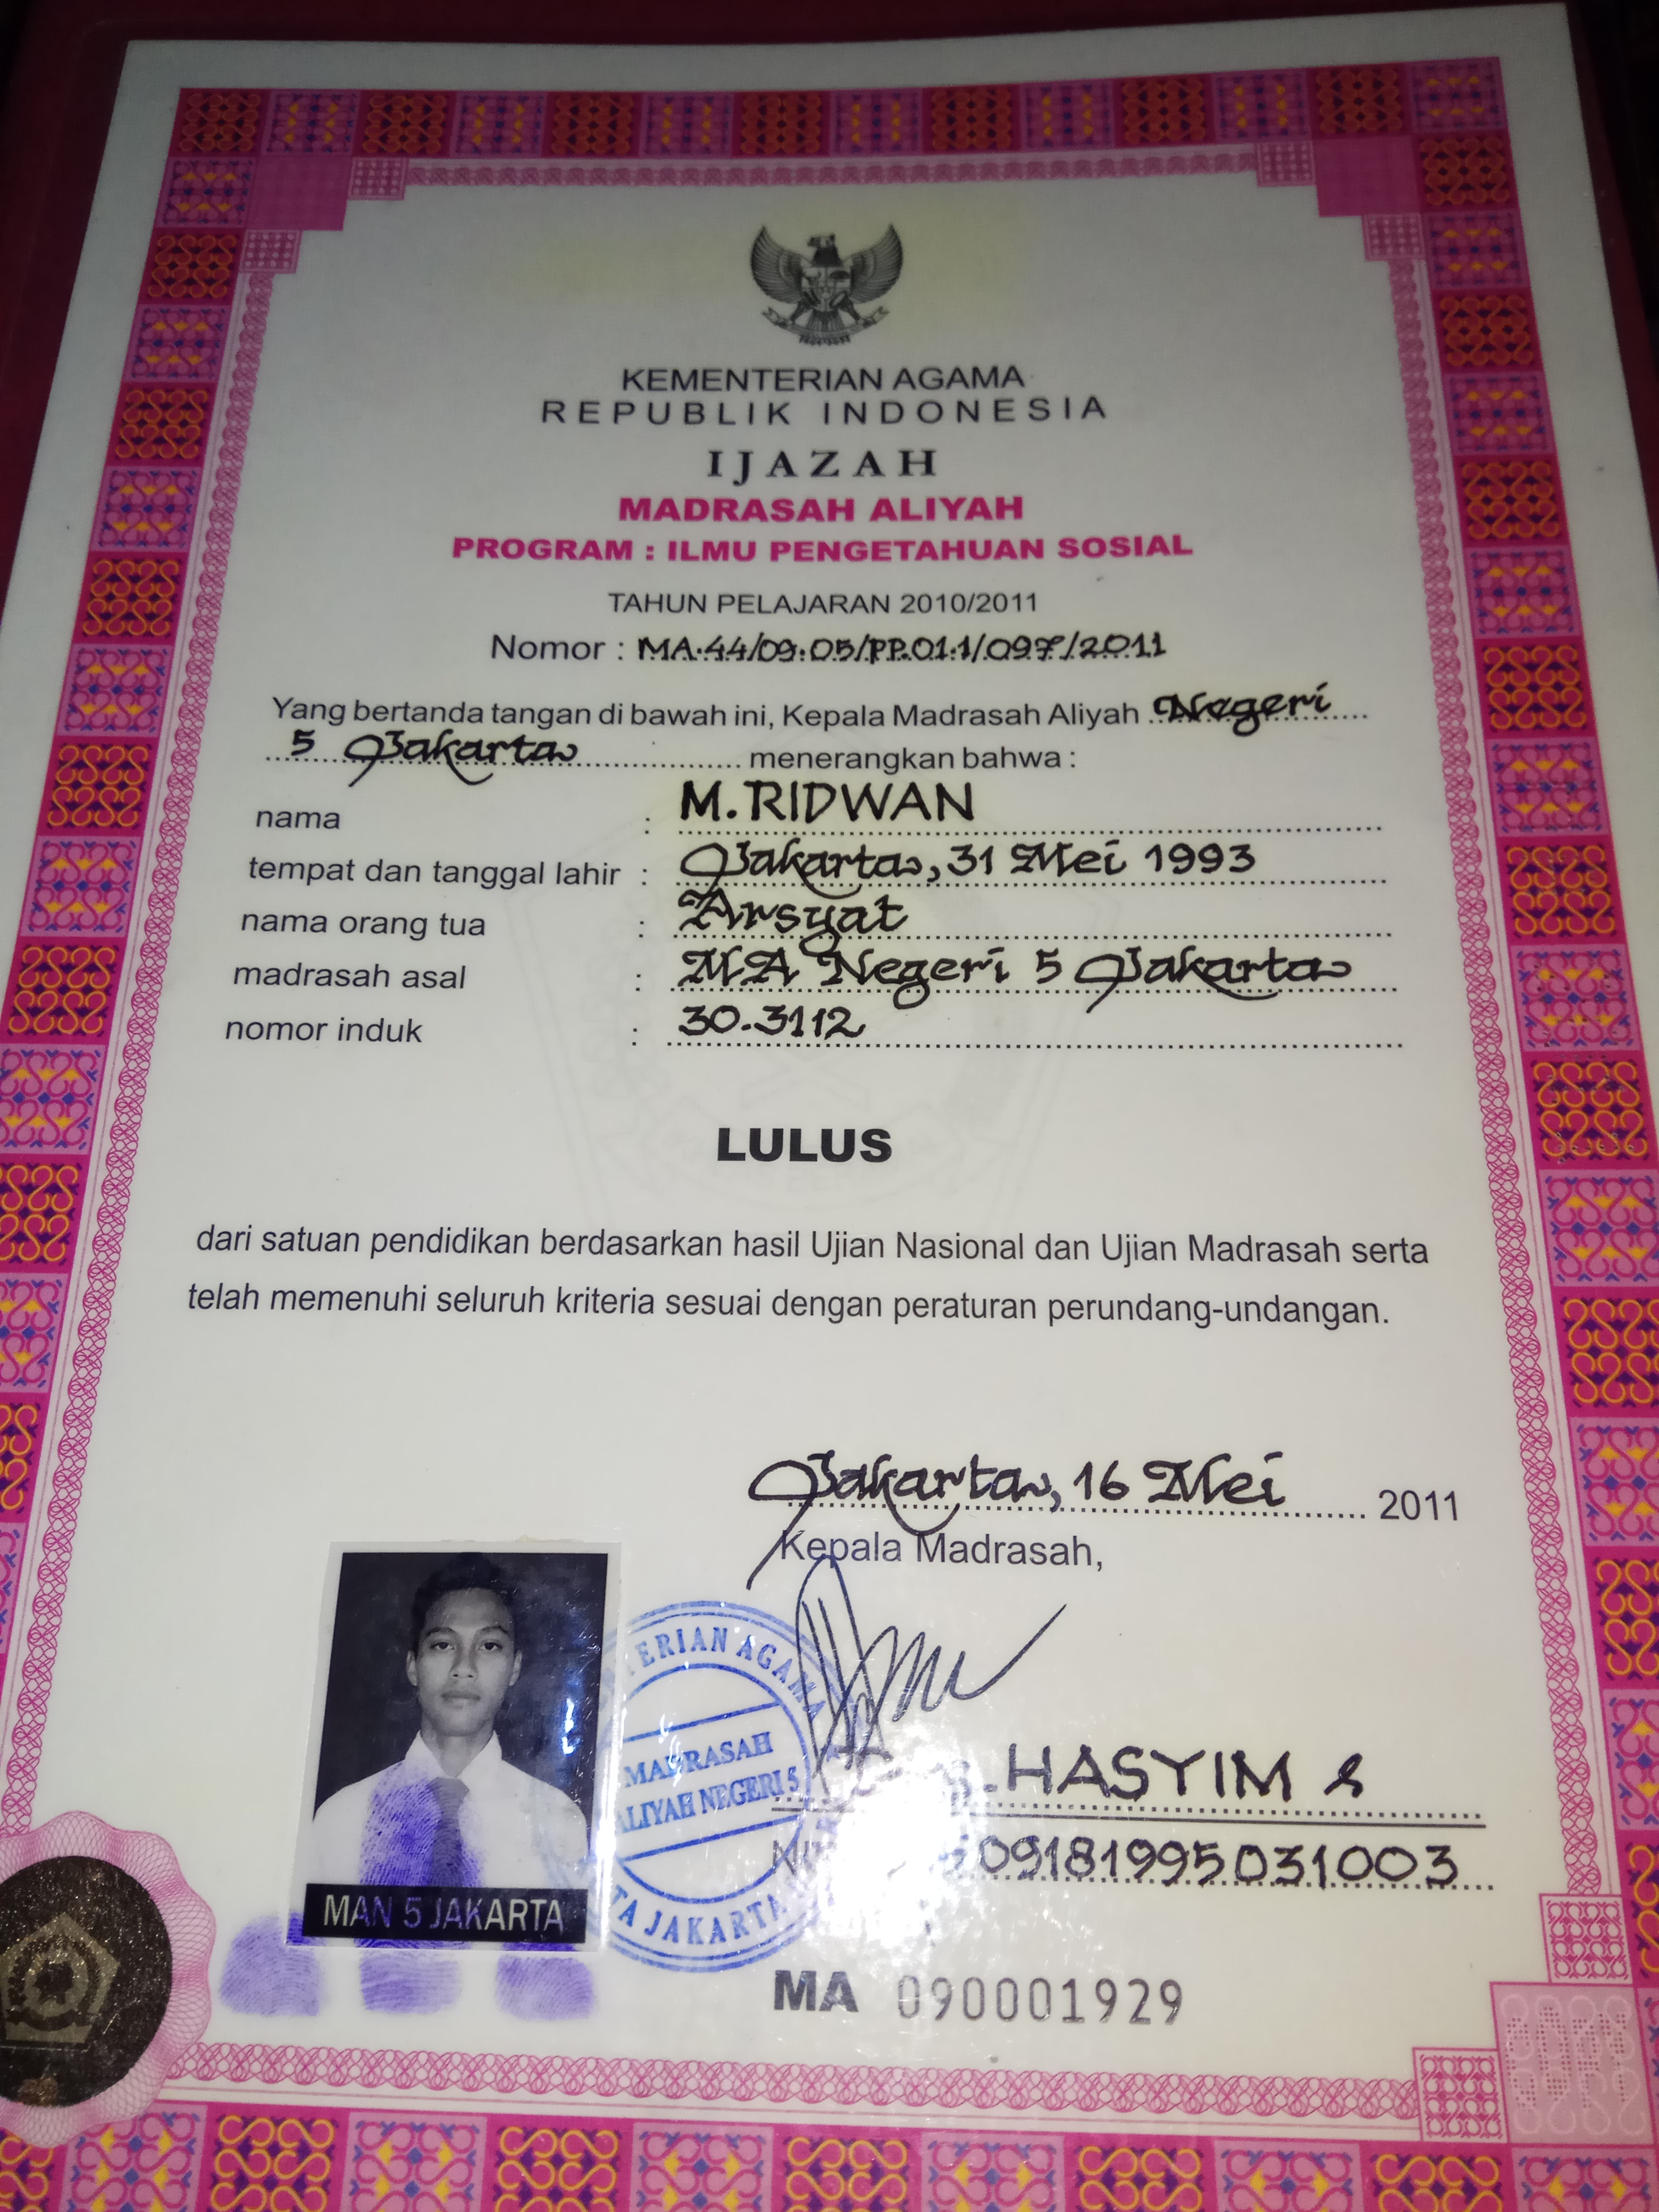 KEMENTERIAN AGAMA
REPUBLIK INDONESIA
IJAZAH
MADRASAH ALIYAH
PROGRAM : ILMU PENGETAHUAN SOSIAL
TAHUN PELAJARAN 2010/2011
Nomor : MA.44/09.05/PP.01.1/097/2011
Yang bertanda tangan di bawah ini, Kepala Madrasah Aliyah Negeri
5 Jakarta menerangkan bahwa :
nama : M. RIDWAN
tempat dan tanggal lahir : Jakarta, 31 Mei 1993
nama orang tua : Arsyat
madrasah asal : MA Negeri 5 Jakarta
nomor induk : 30.3112
LULUS
dari satuan pendidikan berdasarkan hasil Ujian Nasional dan Ujian Madrasah serta
telah memenuhi seluruh kriteria sesuai dengan peraturan perundang-undangan.
Jakarta, 16 Mei 2011
Kepala Madrasah,
TERIAN AGAMA
MADRASAH
ALIYAH NEGERI 5
TA JAKARTA
HASYIM S
09181995031003
MAN 5 JAKARTA
MA 090001929